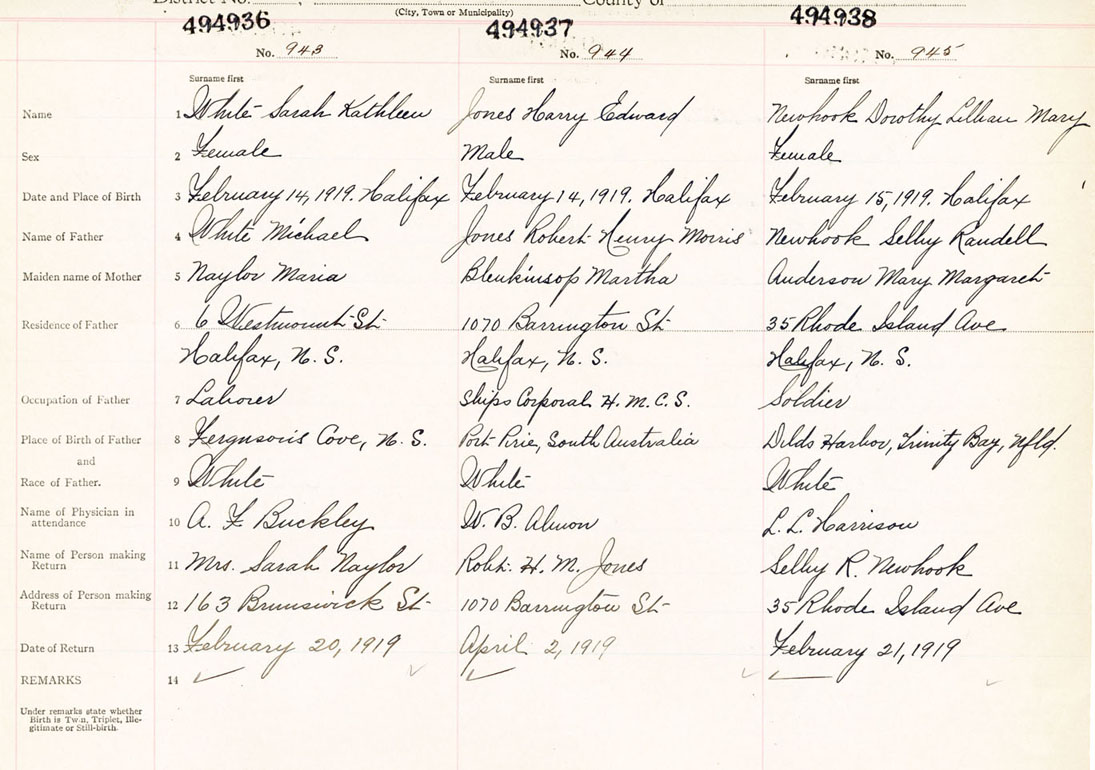 District No. County of
(City, Town or Municipality)
494936 494937 494938
No. 943 No. 944 No. 945
Surname first Surname first Surname first
Name 1 White Sarah Kathleen Jones Harry Edward Newhook Dorothy Lillian Mary
Sex 2 Female Male Female
Date and Place of Birth 3 February 14, 1919. Halifax February 14, 1919. Halifax February 15, 1919. Halifax
Name of Father 4 White Michael Jones Robert Henry Morris Newhook Selby Randell
Maiden name of Mother 5 Naylor Maria Blenkinsop Martha Anderson Mary Margaret
Residence of Father 6 6 Westmount St 1070 Barrington St 35 Rhode Island Ave
Halifax, N. S. Halifax, N. S. Halifax, N. S.
Occupation of Father 7 Laborer Ships Corporal H. M. C. S. Soldier
Place of Birth of Father 8 Fergusons Cove, N. S. Port Pirie, South Australia Dilds Harbor, Trinity Bay, Nfld.
and
Race of Father. 9 White White White
Name of Physician in
attendance 10 A. F Buckley W. B. Almon L. L. Harrison
Name of Person making
Return 11 Mrs. Sarah Naylor Robt. H. M. Jones Selby R. Newhook
Address of Person making
Return 12 163 Brunswick St 1070 Barrington St 35 Rhode Island Ave
Date of Return 13 February 20, 1919 April 2, 1919 February 21, 1919
REMARKS 14
Under remarks state whether
Birth is Twin, Triplet, Ille-
gitimate or Still-birth.